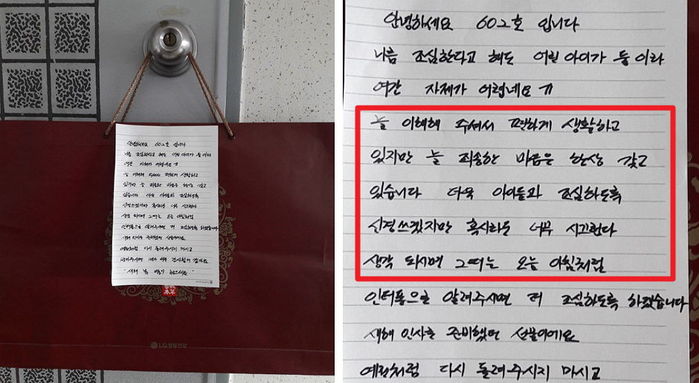 안녕하세요 602호 입니다
나름 조심한다고 해도 어린 아이가 둘 이라
여간 자제가 어렵네요 ㅠ
늘 이해해 주셔서 편하게 생활하고
있지만 늘 죄송한 마음은 항상 갖고
있습니다 더욱 아이들과 조심하도록
신경쓰겠지만 혹시라도 너무 시끄럽다
생각 되시면 그때는 오늘 아침처럼
인터폰으로 알려주시면 더 조심하도록 하겠습니다
새해 인사를 준비했던 선물이에요
예전처럼 다시 돌려주시지 마시고
"새해 복 많이 받으세요"
LG생활건강